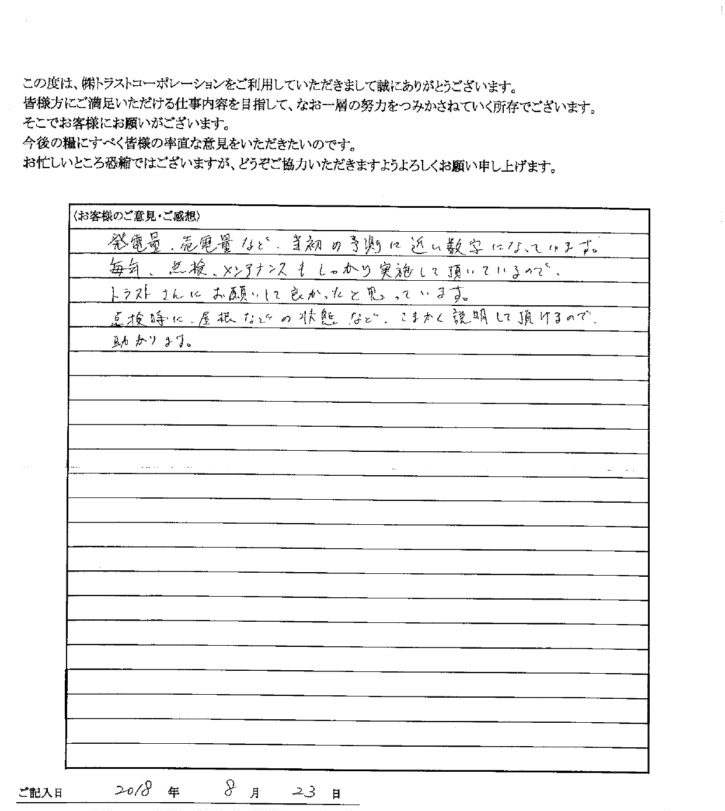 この度は、㈱トラストコーポレーションをご利用していただきまして誠にありがとうございます。
皆様方にご満足いただける仕事内容を目指して、なお一層の努力をつみかさねていく所存でございます。
そこでお客様にお願いがございます。
今後の糧にすべく皆様の率直な意見をいただきたいのです。
お忙しいところ恐縮ではございますが、どうぞご協力いただきますようよろしくお願い申し上げます。
(お客様のご意見・ご感想)
発電量、売電量など、当初の予測に近い数字になっています。
毎年、点検、メンテナンスもしっかり実施して頂いているので、
トラストさんにお願いして良かったと思っています。
点検時に、屋根などの状態など、こまかく説明して頂けるので、
助かります。
ご記入日 2018 年 8 月 23 日